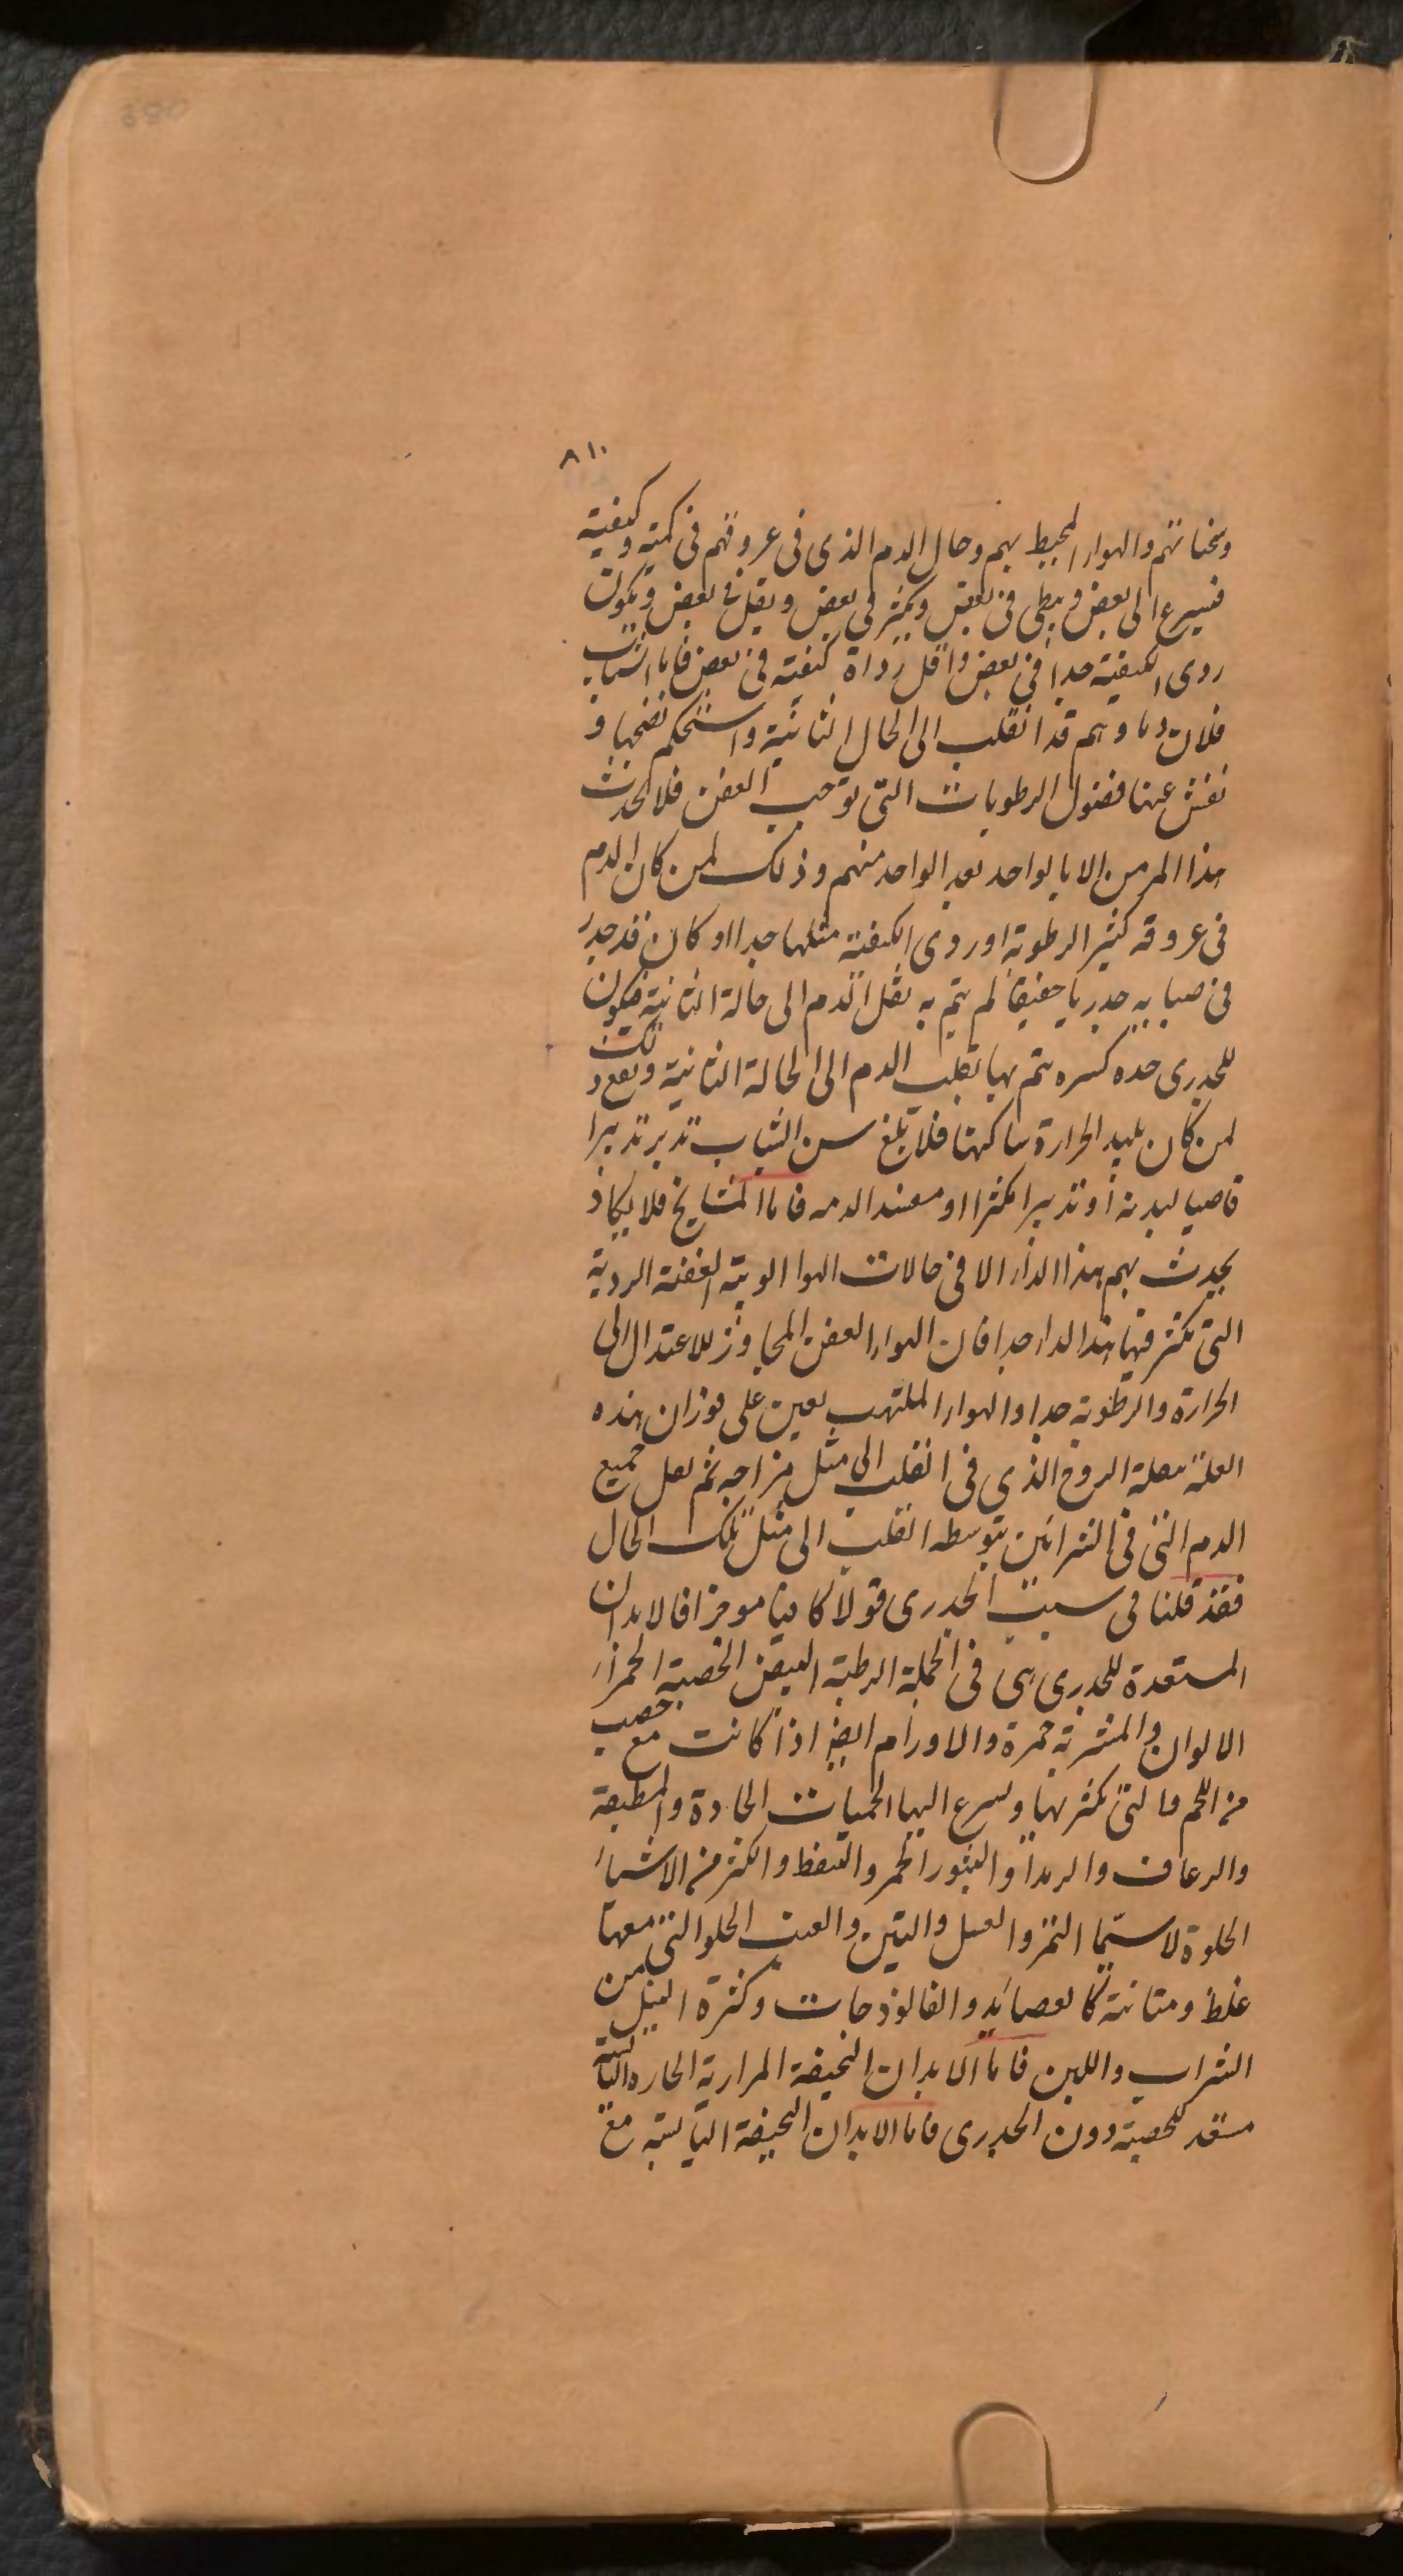 ٨١٠
وسخناتهم والهواء المحيط بهم وحال الدم الذى فى عروقهم فى كميته وكيفيته
فيسرع الى بعض ويبطى فى بعض ويكثر فى بعض ويقل فى بعض ويكون
ردى الكيفية جدا فى بعض واقل رداة كيفيته فى بعض فاما الشباب
فلان دماوهم قد انقلب الى الحال الثانية واستحكم نضجها و
نفش عنها فضول الرطوبات التى توجب العفن فلا يحدث
هذا المرض الا بالواحد بعد الواحد منهم وذلك لمن كان الدم
فى عروقه كثير الرطوبة او ردى الكيفية مثلها جدا او كان قد جدر
فى صبايه جدريا خفيفا لم يتم به نقل الدم الى حالة الثانية فيكون
للجدرى حده كسره يتم بها تقليب الدم الى الحالة الثانية ويقع ذلك
لمن كان بليد الحرارة ساكهنا فلا بلغ سن الشباب تدبر تدبيرا
قاصيا لبدنه او تدبيرا مكثرا او مفسد الدمه فاما المشايخ فلا يكاد
يحدث بهم هذا الداء الا فى حالات الهوا الوبية العفنة الردية
التى يكثر فيها هذا الداء جدا فان الهواء العفن المجاوز للاعتدال الى
الحرارة والرطوبة جدا والهواء الملتهب يعين على فوران هذه
العلة بعلة الروح الذى فى القلب الى مثل مزاجه ثم نعل جميع
الدم التى فى الشرائين بتوسطه القلب الى مثل تلك الحال
فقد قلنا فى سبب الجدرى قولا كافيا موجزا فالابدان
المستعدة للجدرى هى فى الجملة الرطبة البيض الخصبة الحمراء
الالوان والمشربة حمرة والاورام ايضا اذا كانت مع خصب
من اللحم والتى يكثر بها ويسرع اليها الحميات الحادة والمطبقة
والرعاف والرمد والبثور الحمر والنفط واكثر من الاشياء
الحلوة لا سيما التمر والعسل والتين والعنب الحلو التى معها
غلظ ومتانة كالعصائد والفالوذجات وكثرة النيل من
الشراب واللبن فاما الابدان النحيفة المرارية الحاره اليابسة
مستعد للحصبة دون الجدرى فاما الابدان النحيفة اليابسة مع